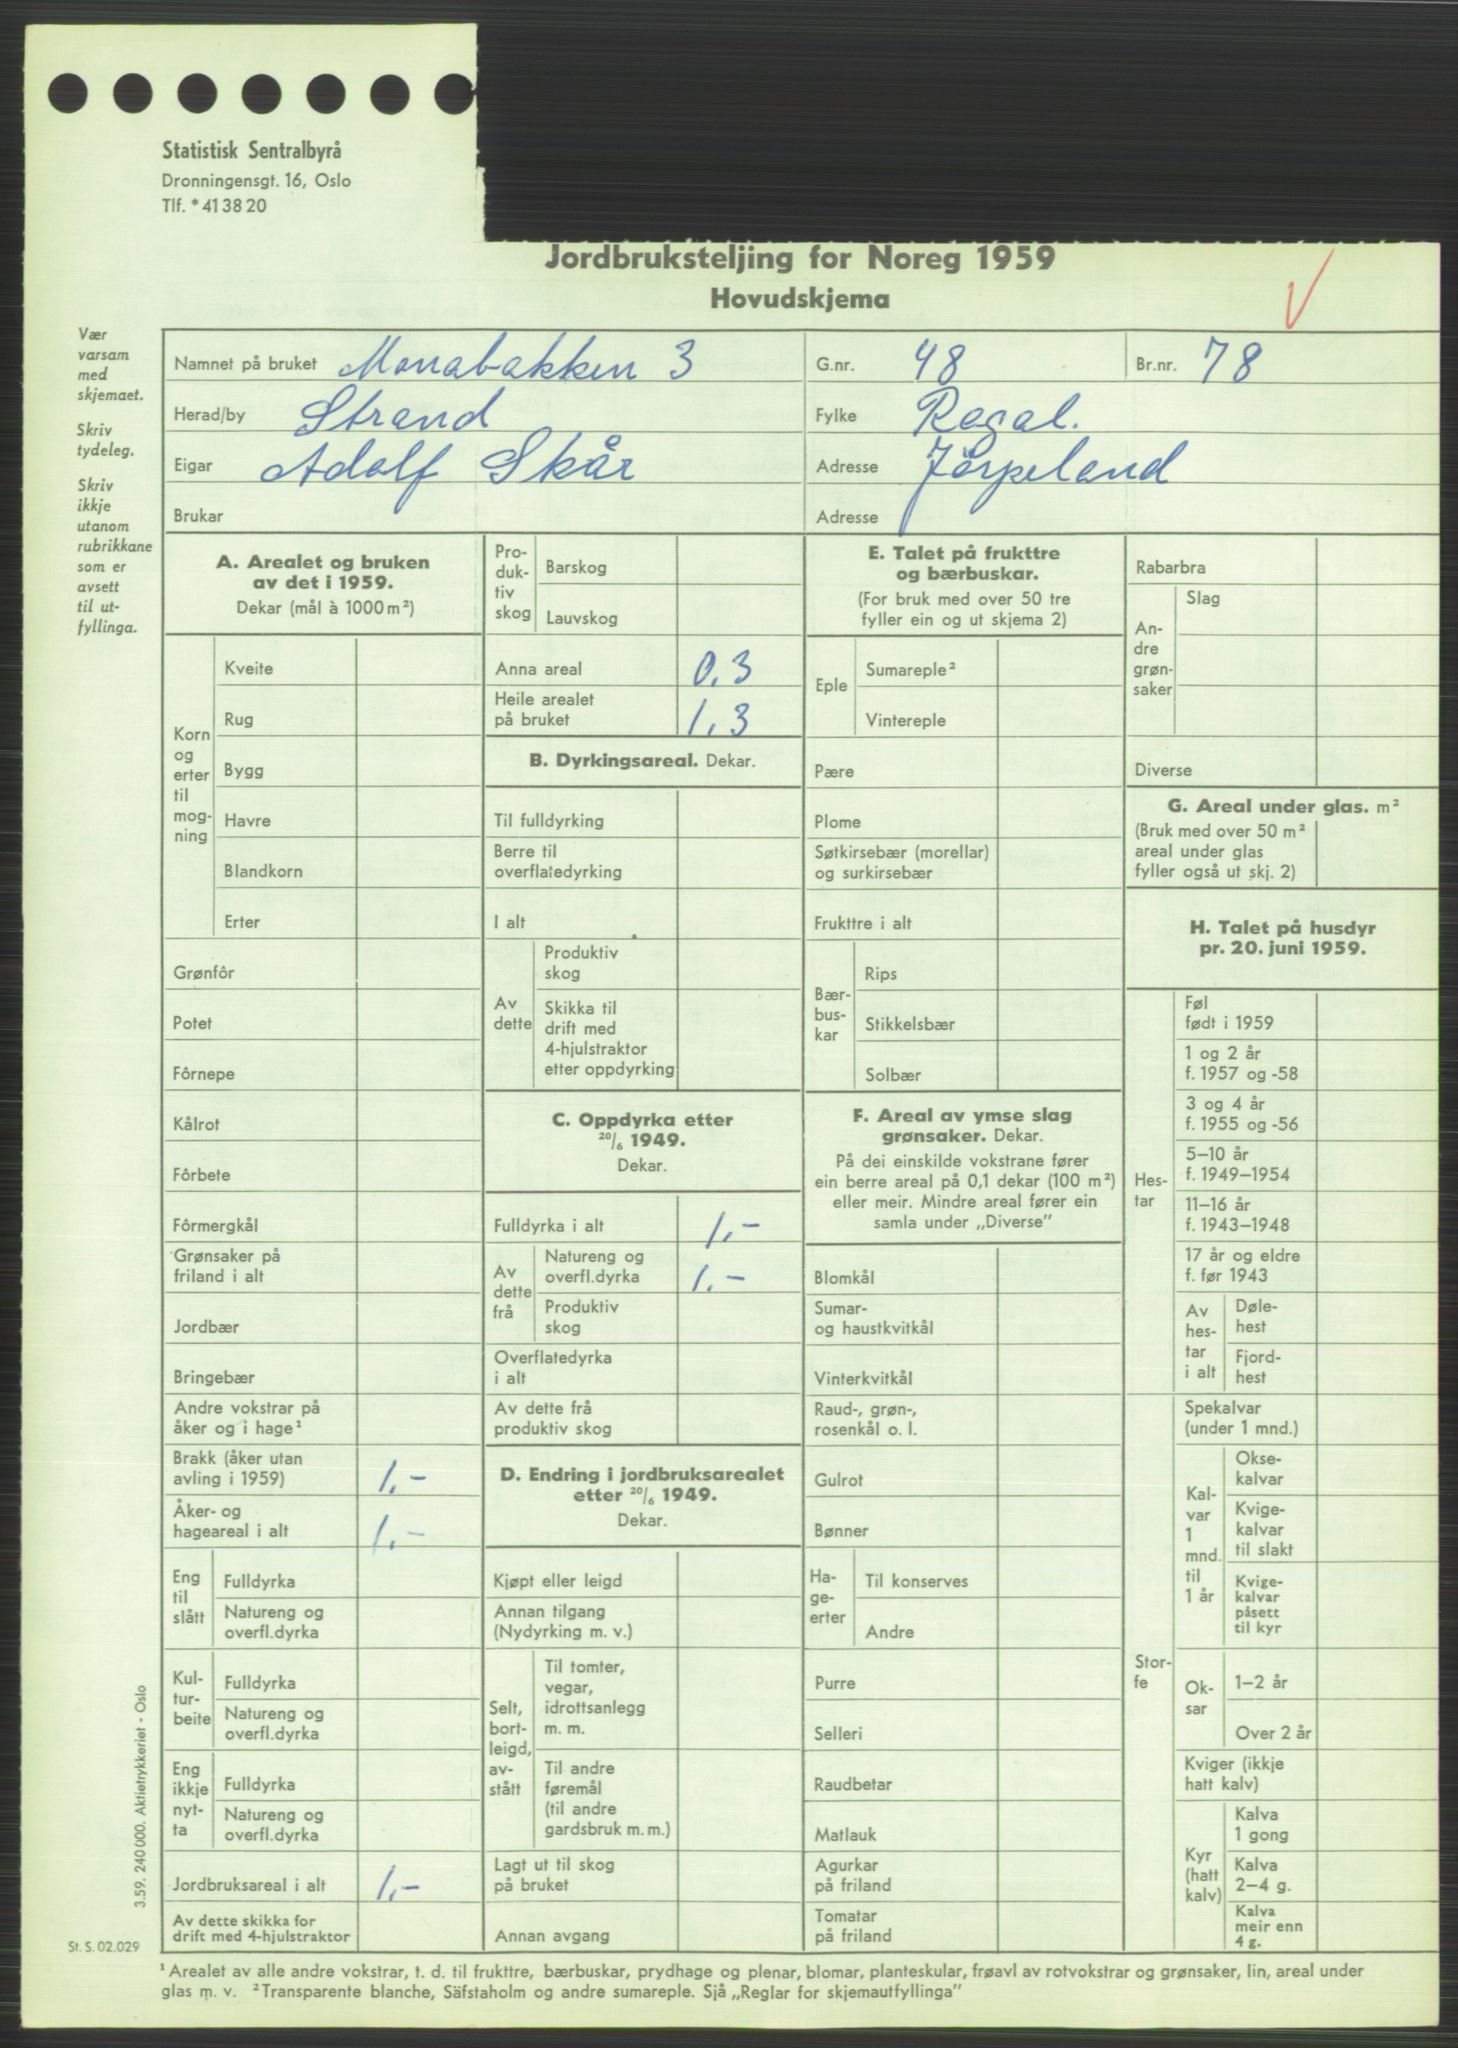 Statistisk Sentralbyrå
Dronningensgt. 16, Oslo
Tlf. *41 38 20
Jordbruksteljing for Noreg 1959
Hovudskjema
Vær
varsam
med
skjemaet.
Skriv
tydeleg.
Skriv
ikkje
utanom
rubrikkane
som er
avsett
til ut-
fyllinga.
Namnet på bruket Monabakken 3 G.nr. 48 Br.nr. 78
Herad/by Strand Fylke Rogal.
Eigar Adolf Skår Adresse Jørpeland
Brukar Adresse
A. Arealet og bruken
av det i 1959.
Dekar (mål à 1000 m²)
Korn
og
erter
til
mog-
ning
Kveite
Rug
Bygg
Havre
Blandkorn
Erter
Grønfôr
Potet
Fôrnepe
Kålrot
Fôrbete
Fôrmergkål
Grønsaker på
friland i alt
Jordbær
Bringebær
Andre vokstrar på
åker og i hage¹
Brakk (åker utan
avling i 1959) 1.-
Åker- og
hageareal i alt 1.-
Eng
til
slått
Fulldyrka
Natureng og
overfl.dyrka
Kul-
tur-
beite
Fulldyrka
Natureng og
overfl.dyrka
Eng
ikkje
nyt-
ta
Fulldyrka
Natureng og
overfl.dyrka
Jordbruksareal i alt 1.-
Av dette skikka for
drift med 4-hjulstraktor
Pro-
duk-
tiv
skog
Barskog
Lauvskog
Anna areal 0.3
Heile arealet
på bruket 1.3
B. Dyrkingsareal. Dekar.
Til fulldyrking
Berre til
overflatedyrking
I alt
Av
dette
Produktiv
skog
Skikka til
drift med
4-hjulstraktor
etter oppdyrking
C. Oppdyrka etter
20/6 1949.
Dekar.
Fulldyrka i alt 1.-
Av
dette
frå
Natureng og
overfl.dyrka 1.-
Produktiv
skog
Overflatedyrka
i alt
Av dette frå
produktiv skog
D. Endring i jordbruksarealet
etter 20/6 1949.
Dekar.
Kjøpt eller leigd
Annan tilgang
(Nydyrking m. v.)
Selt,
bort-
leigd,
av-
stått
Til tomter,
vegar,
idrottsanlegg
m. m.
Til andre
føremål
(til andre
gardsbruk m. m.)
Lagt ut til skog
på bruket
Annan avgang
E. Talet på frukttre
og bærbuskar.
(For bruk med over 50 tre
fyller ein og ut skjema 2)
Eple
Sumareple²
Vintereple
Pære
Plome
Søtkirsebær (morellar)
og surkirsebær
Frukttre i alt
Bær-
bus-
kar
Rips
Stikkelsbær
Solbær
F. Areal av ymse slag
grønsaker. Dekar.
På dei einskilde vokstrane fører
ein berre areal på 0,1 dekar (100 m²)
eller meir. Mindre areal fører ein
samla under „Diverse”
Blomkål
Sumar-
og haustkvitkål
Vinterkvitkål
Raud-, grøn-,
rosenkål o. l.
Gulrot
Bønner
Ha-
ge-
erter
Til konserves
Andre
Purre
Selleri
Raudbetar
Matlauk
Agurkar
på friland
Tomatar
på friland
Rabarbra
An-
dre
grøn-
saker
Slag
Diverse
G. Areal under glas. m²
(Bruk med over 50 m²
areal under glas
fyller også ut skj. 2)
H. Talet på husdyr
pr. 20. juni 1959.
Hes-
tar
Føl
født i 1959
1 og 2 år
f. 1957 og -58
3 og 4 år
f. 1955 og -56
5-10 år
f. 1949-1954
11-16 år
f. 1943-1948
17 år og eldre
f. før 1943
Av
hes-
tar
i alt
Døle-
hest
Fjord-
hest
Stor-
fe
Spekalvar
(under 1 mnd.)
Kal-
var
1
mnd.
til
1 år
Okse-
kalvar
Kvige-
kalvar
til slakt
Kvige-
kalvar
påsett
til kyr
Ok-
sar
1-2 år
Over 2 år
Kviger (ikkje
hatt kalv)
Kyr
(hatt
kalv)
Kalva
1 gong
Kalva
2-4 g.
Kalva
meir enn
4 g.
3.59. 240 000. Aktietrykkeriet - Oslo
St. S. 02.029
¹ Arealet av alle andre vokstrar, t. d. til frukttre, bærbuskar, prydhage og plenar, blomar, planteskular, frøavl av rotvokstrar og grønsaker, lin, areal under
glas m. v. ² Transparente blanche, Säfstaholm og andre sumareple. Sjå „Reglar for skjemautfyllinga”